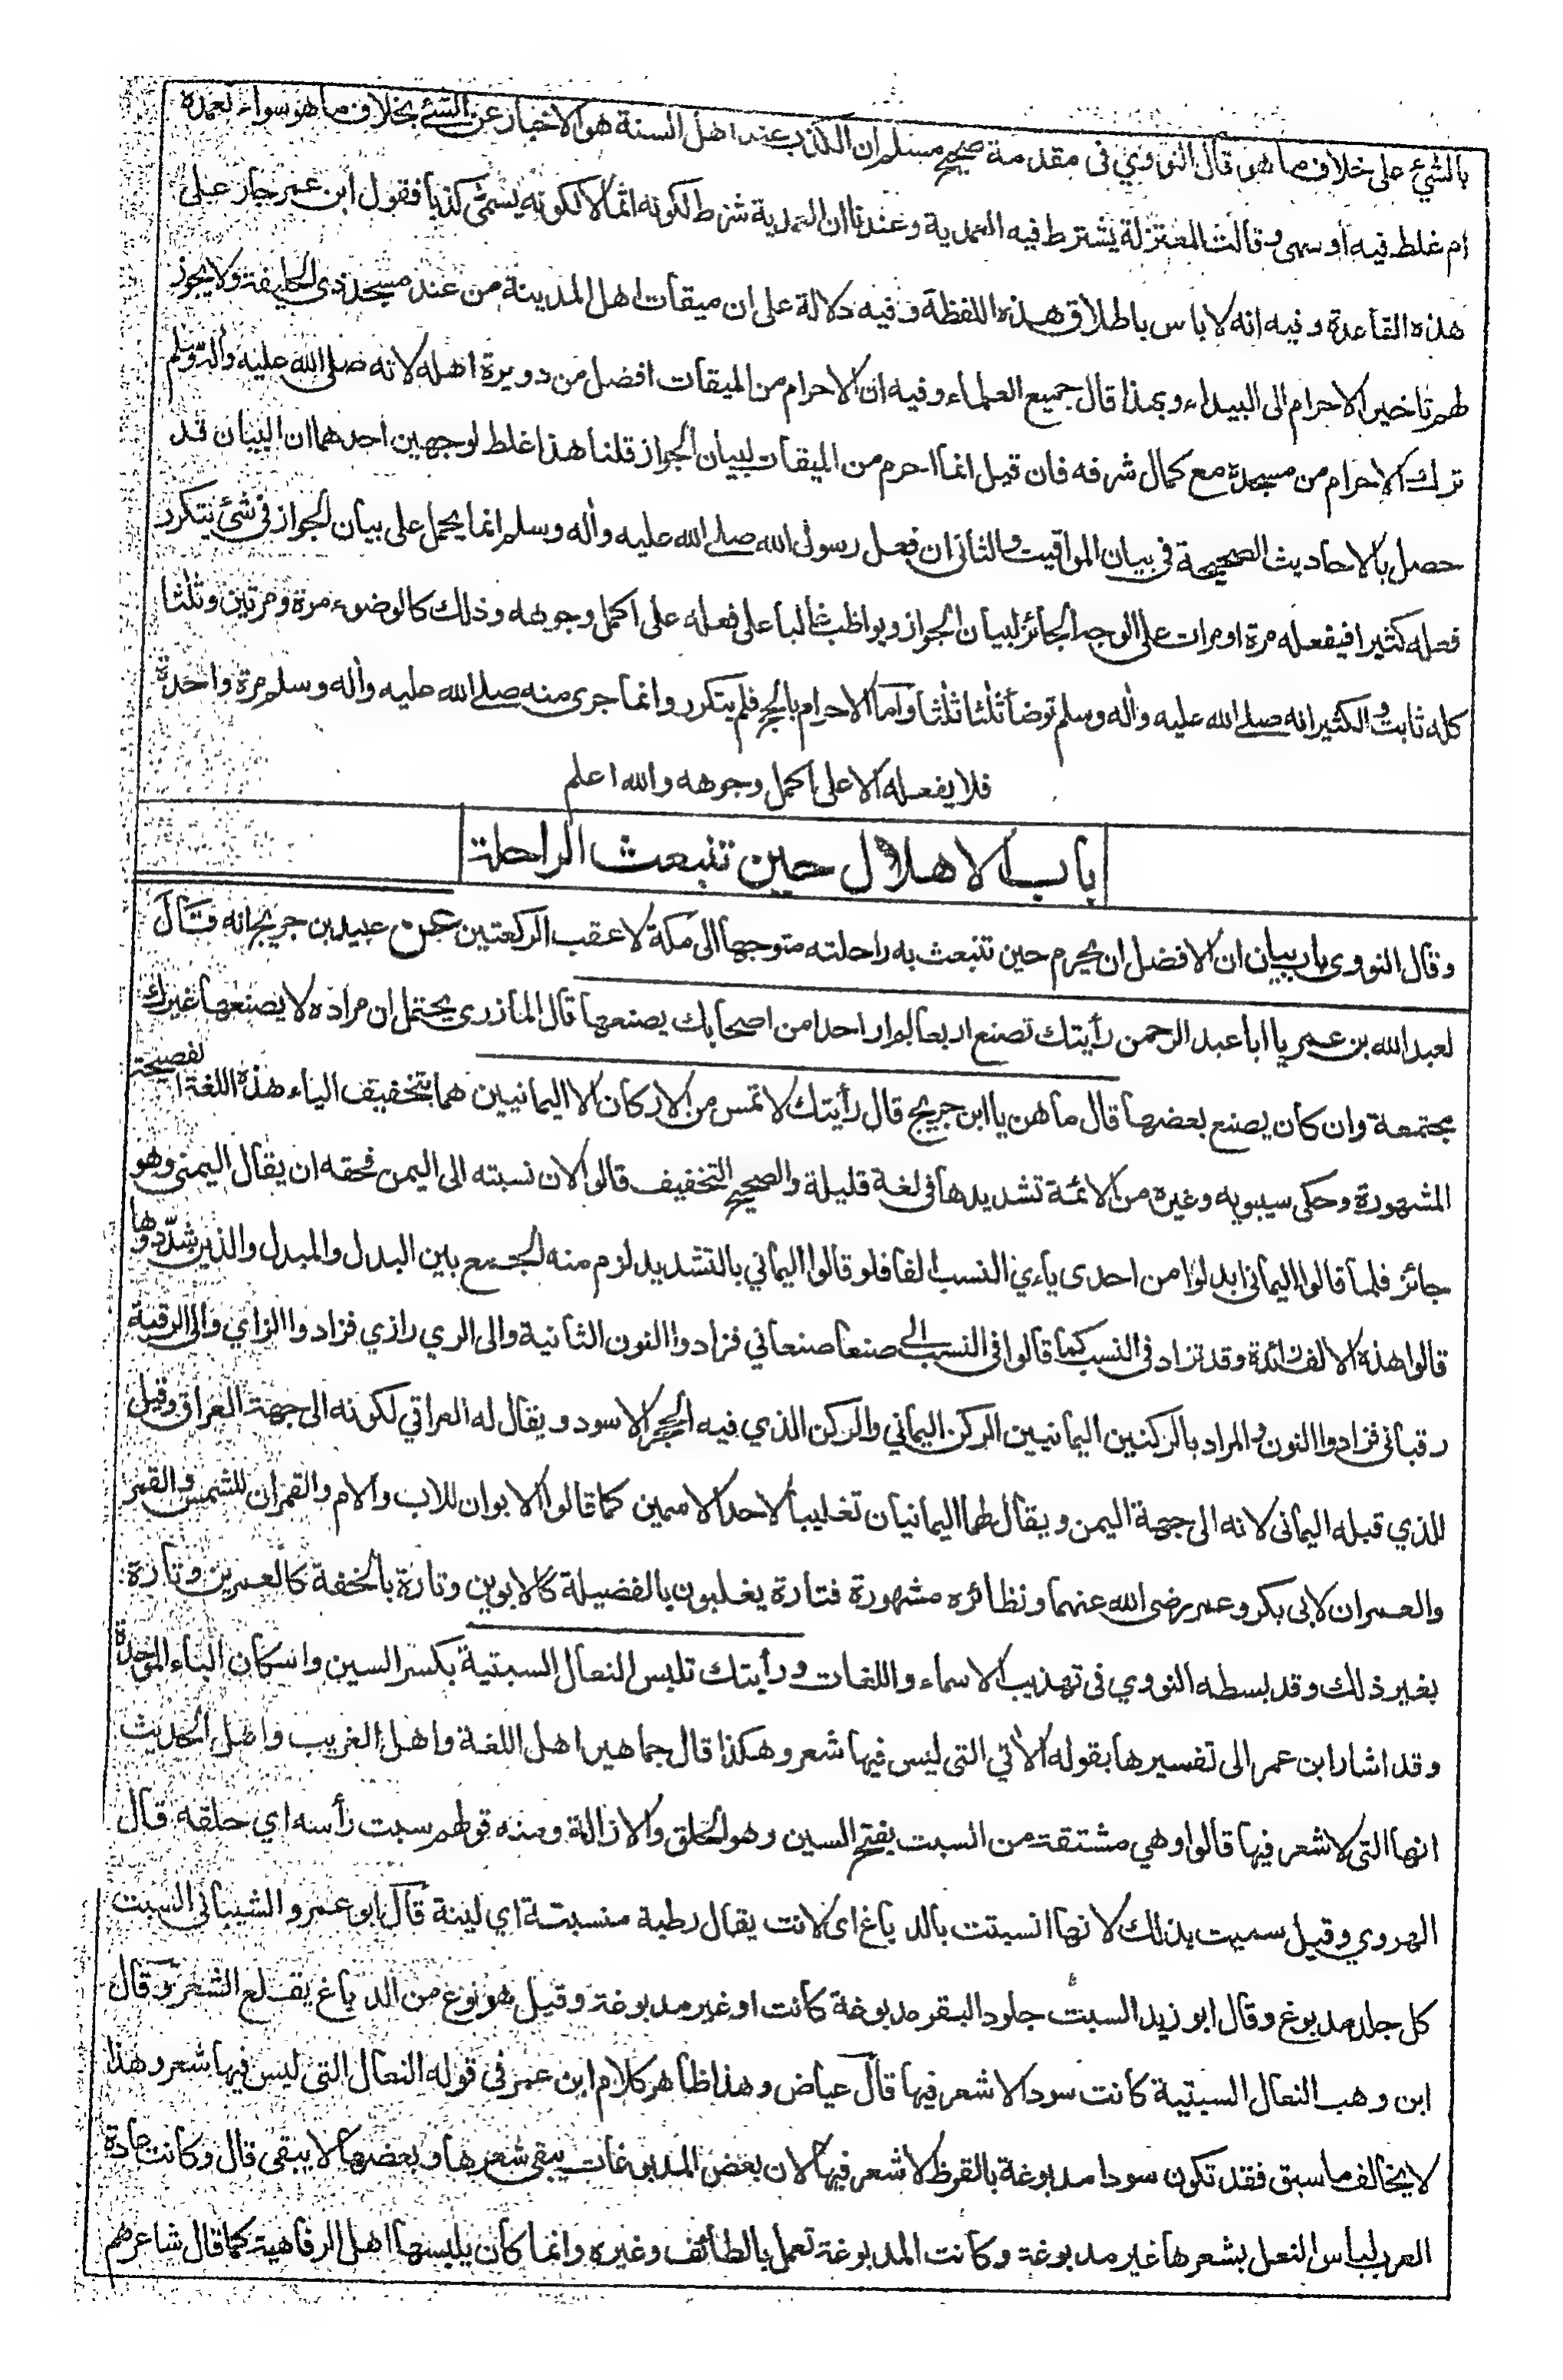 بالشيء على خلاف ما هو قال النووي في مقدمة صحيح مسلم ان الكذب عند اهل السنة هو الاخبار عن الشئ بخلاف ما هو سواء تعمده
ام غلط فيه او سهى وقالت المعتزلة يشترط فيه العمدية وعندنا ان العمدية شرط لكونه اثما لا لكونه يسمى كذبا فقول ابن عمر جار على
هذه القاعدة وفيه انه لا باس باطلاق هذه اللفظة وفيه دلالة على ان ميقات اهل المدينة من عند مسجد ذي الحليفة ولا يجوز
لهم تاخير الاحرام الى البيداء وبهذا قال جميع العلماء وفيه ان الاحرام من الميقات افضل من دويرة اهله لانه صلى الله عليه واله وسلم
ترك الاحرام من مسجده مع كمال شرفه فان قيل انما احرم من الميقات لبيان الجواز قلنا هذا غلط لوجهين احدهما ان البيان قد
حصل بالاحاديث الصحيحة في بيان المواقيت والثاني ان فعل رسول الله صلى الله عليه واله وسلم انما يحمل على بيان الجواز في شئ يتكرر
فعله كثيرا فيفعله مرة او مرات على الوجه الجائز لبيان الجواز ويواظب غالبا على فعله على اكمل وجوهه وذلك كالوضوء مرة ومرتين وثلثا
كله ثابت والكثير انه صلى الله عليه واله وسلم توضأ ثلثا ثلثا واما الاحرام بالحج فلم يتكرر وانما جرى منه صلى الله عليه واله وسلم مرة واحدة
فلا يفعله الا على اكمل وجوهه والله اعلم
باب الاهلال حين تنبعث الراحلة
وقال النووى باب بيان ان الافضل ان يحرم حين تنبعث به راحلته متوجها الى مكة لا عقب الركعتين عن عبيد بن جريج انه قال
لعبد الله بن عمر يا ابا عبد الرحمن رأيتك تصنع اربعا لم ار احدا من اصحابك يصنعها قال المازري يحتمل ان مراده لا يصنعها غيرك
مجتمعة وان كان يصنع بعضها قال ما هن يا ابن جريج قال رأيتك لا تمس من الاركان الا اليمانيين هما بتخفيف الياء هذه اللغة الفصيحة
المشهورة وحكى سيبويه وغيره من الائمة تشديدها في لغة قليلة والصحيح التخفيف قالوا لان نسبته الى اليمن فحقه ان يقال اليمنى وهو
جائز فلما قالوا اليمانى ابدلوا من احدى ياءي النسب الفا فلو قالوا اليماني بالتشديد لزم منه الجمع بين البدل والمبدل والذين شدّدوها
قالوا هذه الالف زائدة وقد تزاد في النسب كما قالوا في النسب الى صنعا صنعاني فزادوا النون الثانية والى الري رازي فزادوا الزاي والى الرقبة
رقباني فزادوا النون والمراد بالركنين اليمانيين الركن اليماني والركن الذي فيه الحجر الاسود ويقال له العراقي لكونه الى جهة العراق وقيل
للذي قبله اليمانى لانه الى جهة اليمن ويقال لهما اليمانيان تغليبا لاحد الاسمين كما قالوا الابوان للاب والام والقمران للشمس والقمر
والعمران لابي بكر وعمر رضى الله عنهما ونظائره مشهورة فتارة يغلبون بالفضيلة كالابوين وتارة بالخفة كالعمرين وتارة
بغير ذلك وقد بسطه النووي في تهذيب الاسماء واللغات ورأيتك تلبس النعال السبتية بكسر السين واسكان الباء الموحدة
وقد اشار ابن عمر الى تفسيرها بقوله الآتي التي ليس فيها شعر وهكذا قال جماهير اهل اللغة واهل الغريب واهل الحديث
انها التي لا شعر فيها قالوا وهي مشتقة من السبت بفتح السين وهو الحلق والازالة ومنه قولهم سبت رأسه اي حلقه قال
الهروي وقيل سميت بذلك لانها انسبتت بالدباغ اى لانت يقال رطبة منسبتة اي لينة قال ابو عمرو الشيباني السبت
كل جلد مدبوغ وقال ابو زيد السبت جلود البقر مدبوغة كانت او غير مدبوغة وقيل هو نوع من الدباغ يقلع الشعر وقال
ابن وهب النعال السبتية كانت سودا لا شعر فيها قال عياض وهذا ظاهر كلام ابن عمر في قوله النعال التي ليس فيها شعر وهذا
لا يخالف ما سبق فقد تكون سودا مدبوغة بالقرظ لا شعر فيها لان بعض المدبوغات يبقى شعرها وبعضها لا يبقى قال وكانت عادة
العرب لباس النعل بشعرها غير مدبوغة وكانت المدبوغة تعمل بالطائف وغيره وانما كان يلبسها اهل الرفاهية كما قال شاعرهم